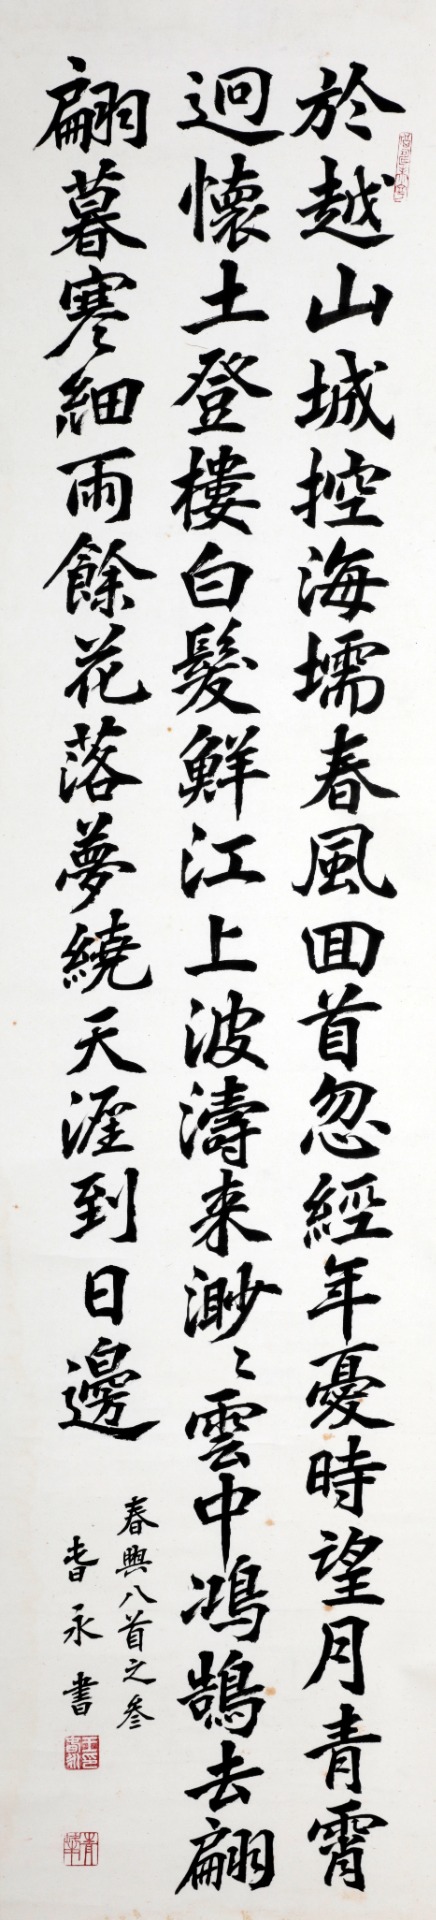 於越山城控海壖春風回首忽經年憂時望月青霄
迥懷土登樓白髮鮮江上波濤来渺〻雲中鴻鵠去翩
翩暮寒細雨餘花落夢繞天涯到日邊
春興八首之叁
壽永書